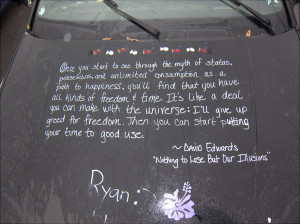 Once you start to see through the myth of status,
possessions, and unlimited consumption, as a
path to happiness, you'll find that you have
all kinds of freedom & time. It's like a deal
you can make with the universe: I'll give up
greed for freedom. Then you can start putting
your time to good use.
~ David Edwards
"Nothing to Lose But Our Illusions"
Ryan: